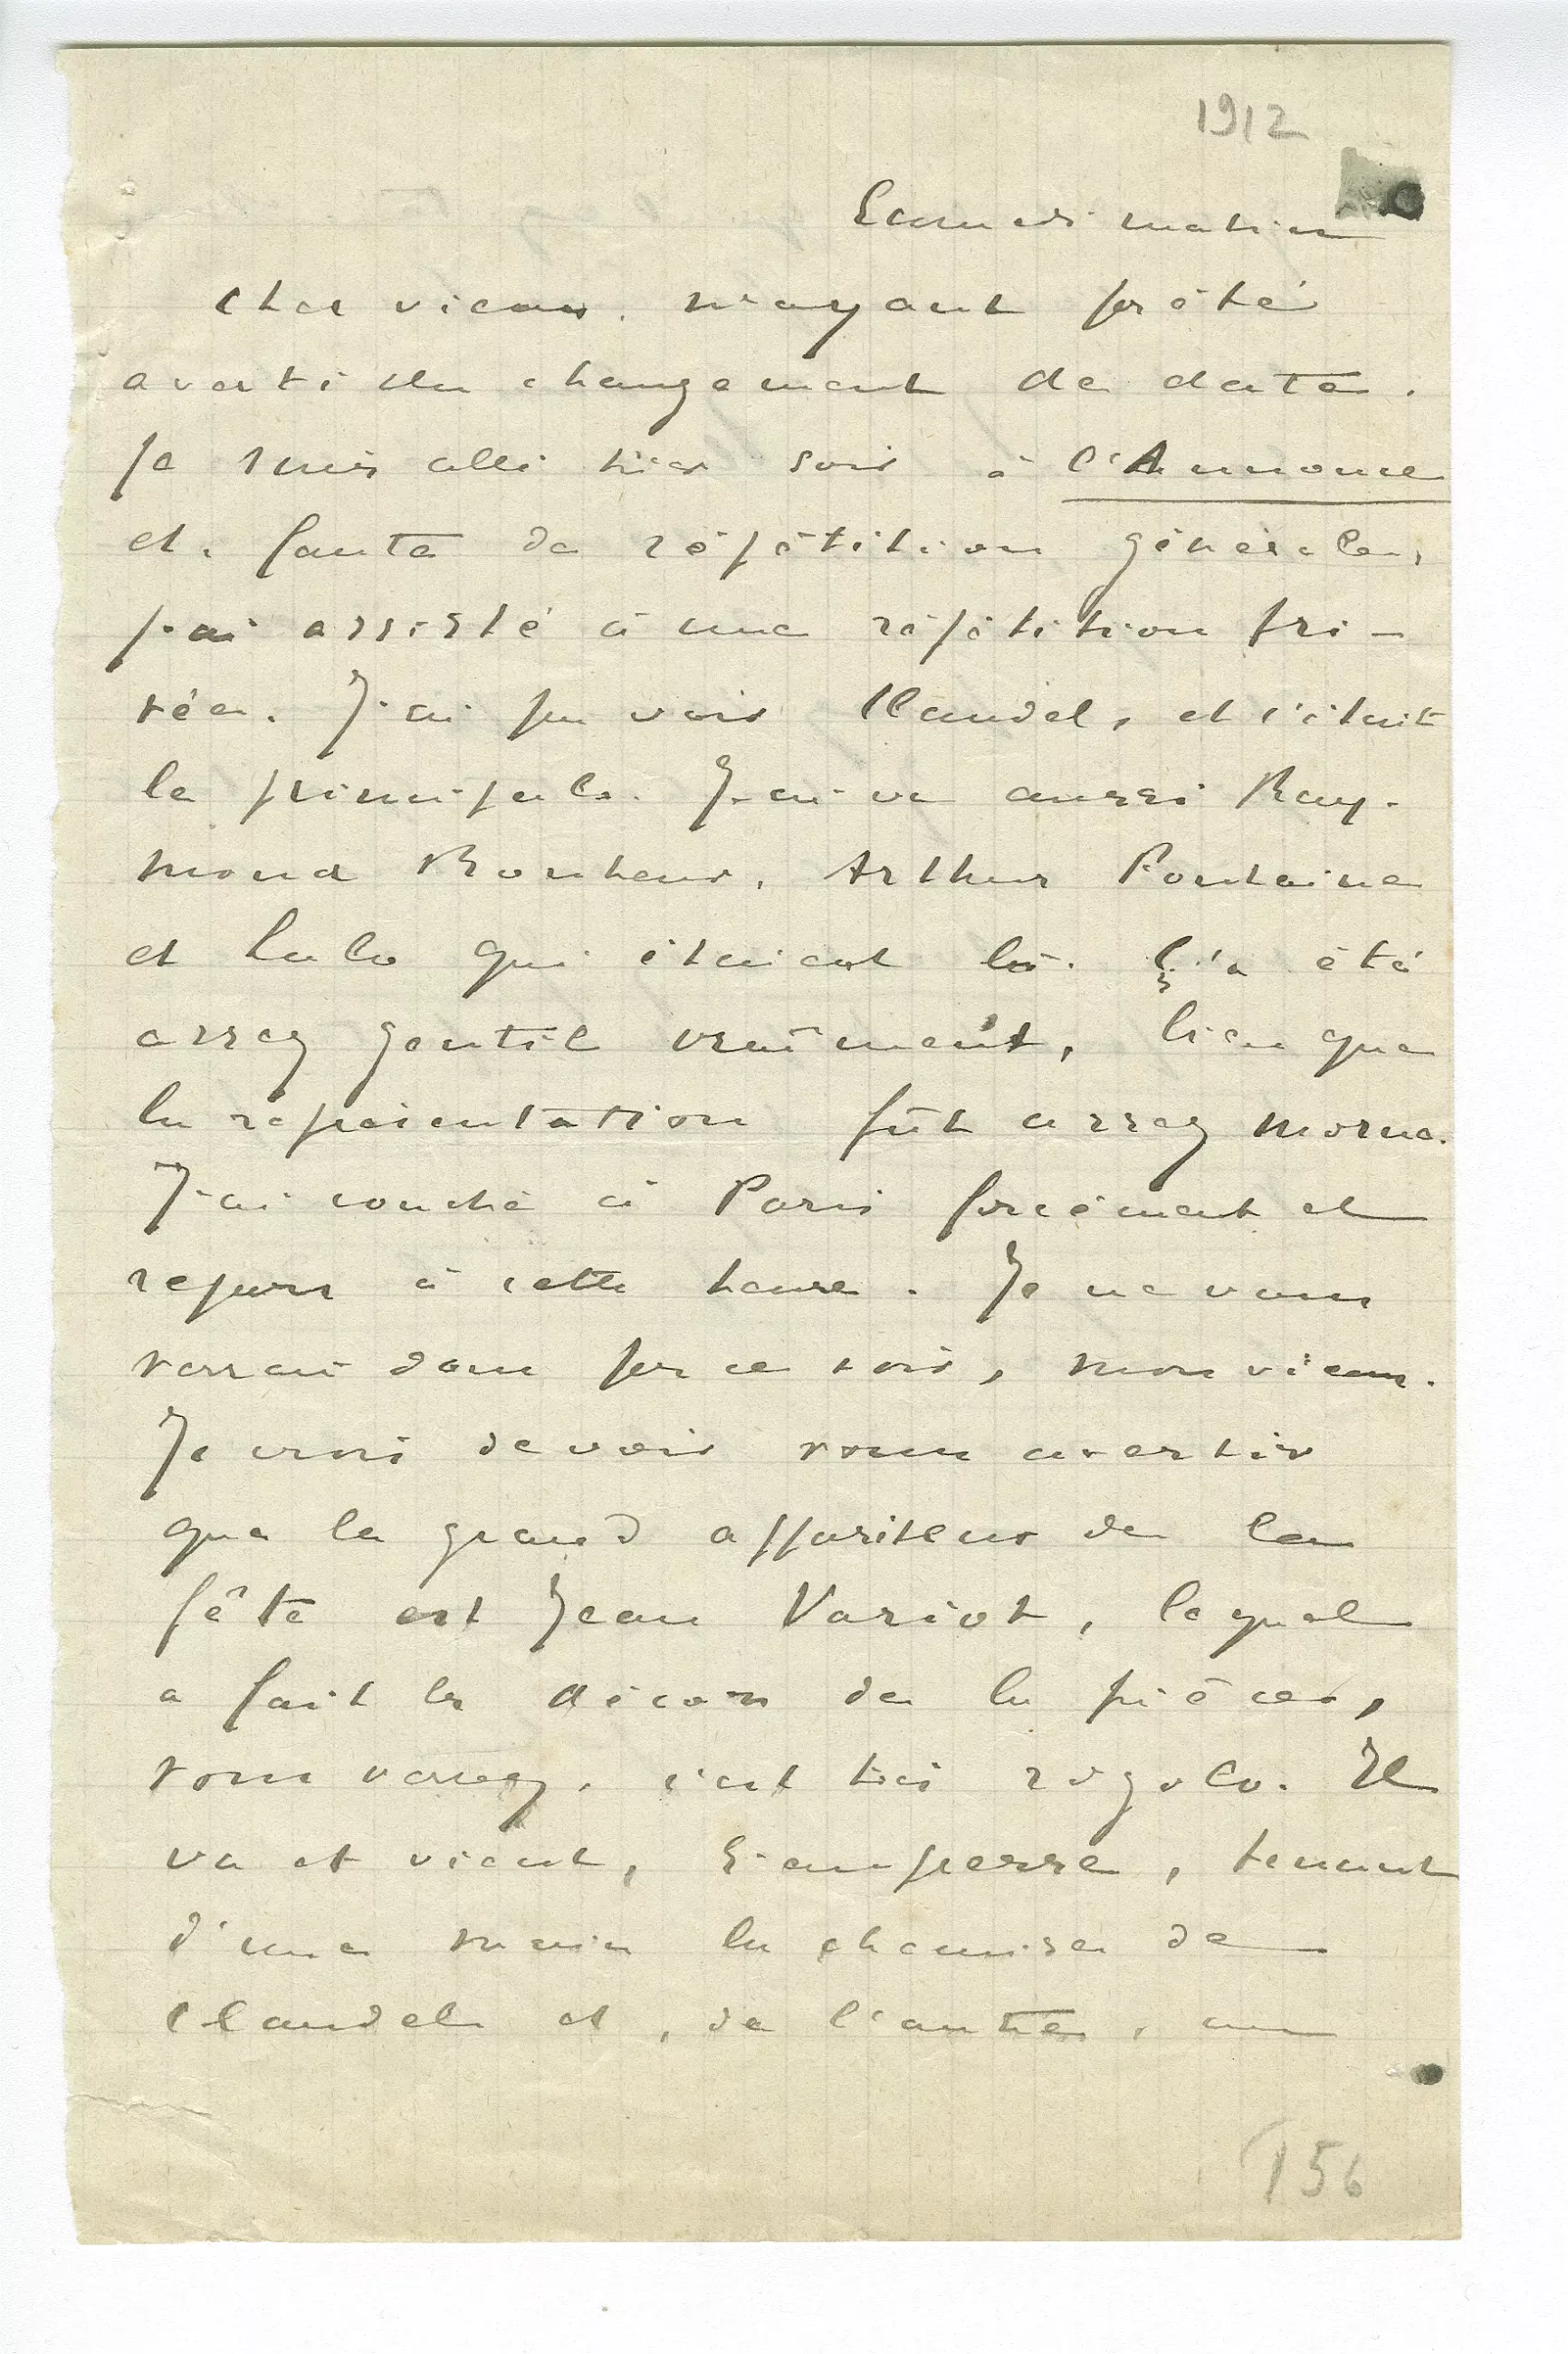 1912
Samedi matin
Cher vieux. N'ayant pas été
averti du changement de date.
je suis allé hier soir à l'Annonce
et, faute de répétition générale,
j'ai assisté à une répétition pri-
vée. J'ai pu voir Claudel, et c'était
le principal. J'ai vu aussi Ray-
mond Bonheur, Arthur Fontaine
et Lulo qui étaient là. Ç'a été
assez gentil vraîment, bien que
la représentation fût assez morne.
J'ai couché à Paris forcément et
repars à cette heure. Je ne vous
verrai donc pas ce soir, mon vieux.
Je crois devoir vous avertir
que le grand appariteur de la
fête est Jean Variot, lequel
a fait les décors de la pièce,
vous verrez, c'est très rigolo. Il
va et vient, s'empresse, tenant
d'une main la chemise de
Claudel et, de l'autre, un
156